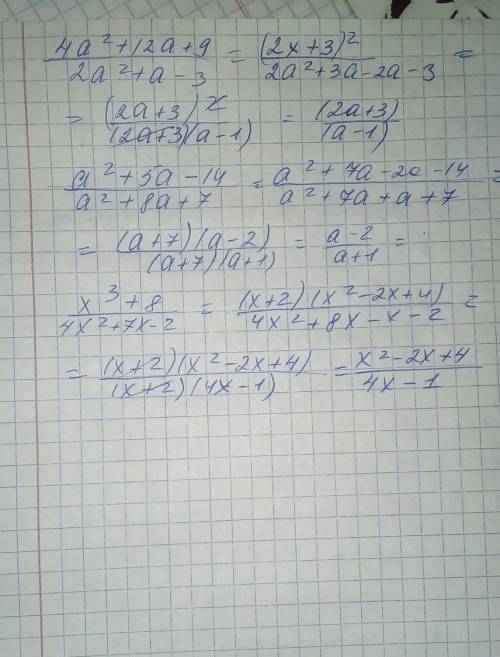 (4a²+12a+9)/(2a²+a-3) = (2x+3)²/(2a²+3a-2a-3) =
= (2a+3)^x/((2a+3)(a-1)) = (2a+3)/(a-1)
(a²+5a-14)/(a²+8a+7) = (a²+7a-2a-14)/(a²+7a+a+7) =
= (a+7)(a-2)/((a+7)(a+1)) = (a-2)/(a+1) =
(x³+8)/(4x²+7x-2) = (x+2)(x²-2x+4)/(4x²+8x-x-2) =
= (x+2)(x²-2x+4)/((x+2)(4x-1)) = (x²-2x+4)/(4x-1)